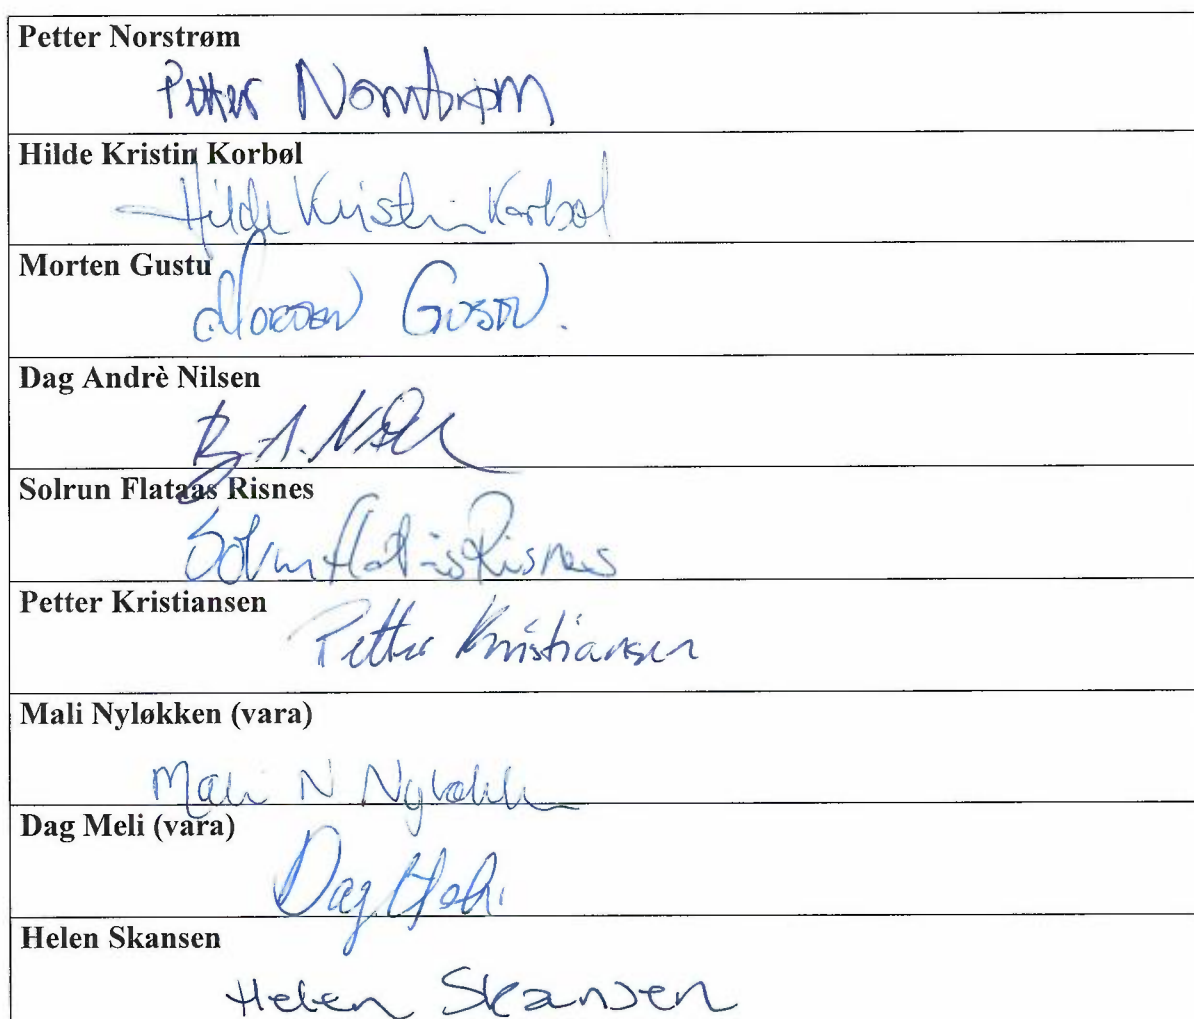 Petter Norstrøm
Petter Norstrøm
Hilde Kristin Korbøl
Hilde Kristin Korbøl
Morten Gustu
Morten Gustu.
Dag Andrè Nilsen
D. A. Nilsen
Solrun Flataas Risnes
Solrun Flataas Risnes
Petter Kristiansen
Petter Kristiansen
Mali Nyløkken (vara)
Mali N Nyløkken
Dag Meli (vara)
Dag Meli
Helen Skansen
Helen Skansen